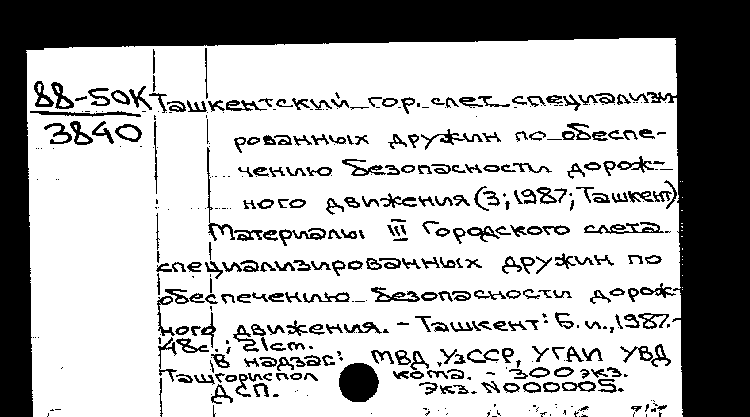 88-50К Ташкентский гор. слет специализи-
3840
рованных дружин по обеспе-
чению безопасности дорож-
ного движения (3; 1987; Ташкент).
Материалы III Городского слета
специализированных дружин по
обеспечению безопасности дорож-
ного движения. - Ташкент: Б. и., 1987. -
48с.; 21cm.
В надзаг: МВД УзССР, УГАИ УВД
Ташгорисполкома. - 300 экз.
ДСП. Экз. N000005.